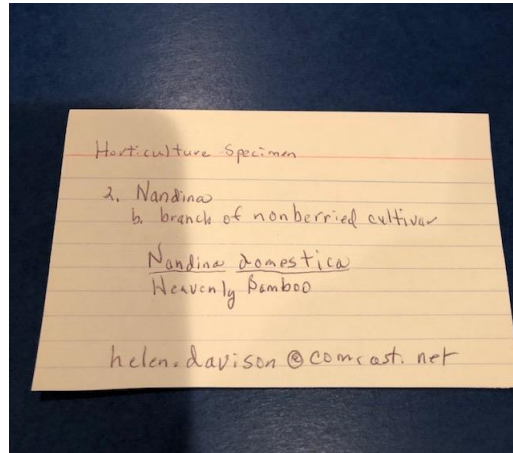 Horticulture Specimen
2. Nandina
b. branch of nonberried cultivar
Nandina domestica
Heavenly Bamboo
helen.davison@comcast.net